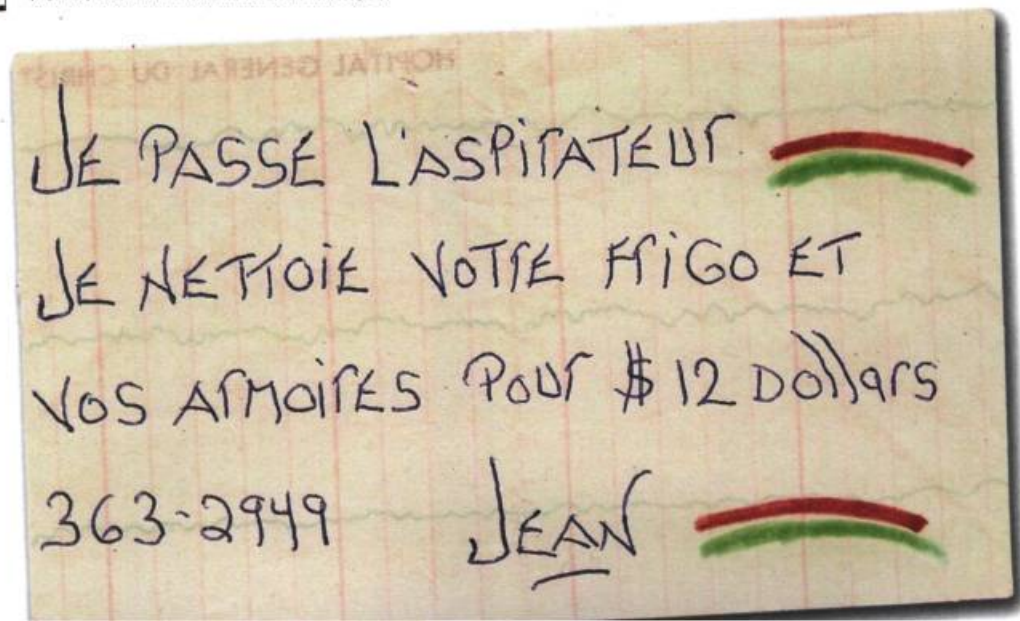 HOPITAL GENERAL DU CHRIST
JE PASSE L'ASPIrATEUr
JE NETTOIE VOTrE FriGO ET
VOS ArMOIrES POUr $ 12 DOllars
363-2949 JEAN